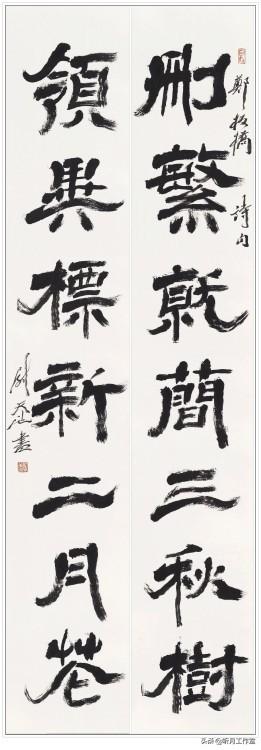 鄭板橋 詩句
刪繁就簡三秋樹
領異標新二月花
書
头条@听月工作室